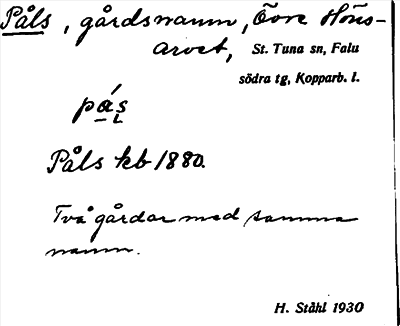 Påls, gårdsnamn, Övre Höns-
arvet, St. Tuna sn, Falu
södra tg, Kopparb. l.
pá̱s̱
Påls kb 1880.
Två gårdar med samma
namn.
H. Ståhl 1930